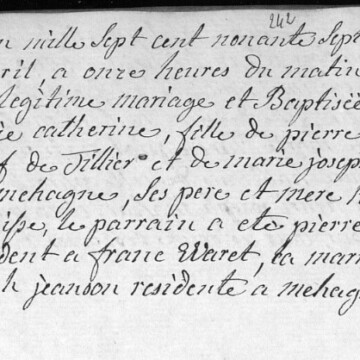 242
n mille sept cent nonante sept
ril, a onze heures du matin
legitime mariage et Baptisée
ie catherine, fille de pierre
f de Tillier et de marie joseph
mehagne, ses pere et mere
isse, le parrain a eté pierre
dent a franc Waret, la marr
h jeanson residente a mehag